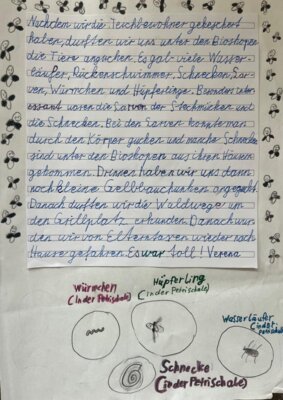 Nachdem wir die Teichbewohner gekeschert
haben, durften wir uns unter den Bioskopen
die Tiere angucken. Es gab viele Wasser-
läufer, Rückenschwimmer, Schnecken, Lar-
ven, Würmchen und Hüpferlinge. Besonders inter-
essant waren die Larven der Stechmücken und
die Schnecken. Bei den Larven konnte man
durch den Körper gucken und manche Schnecken
sind unter den Bioskopen aus ihren Häusern
gekommen. Drinnen haben wir uns dann
noch kleine Gelbbauchunken angeguckt.
Danach durften wir die Waldwege um
den Grillplatz erkunden. Danach wur-
den wir von Elterntaxen wieder nach
Hause gefahren. Es war toll! Verena
Würmchen
(in der Petrischale)
Hüpferling
(in der Petrischale)
Wasserläufer
(in der
Petrischale)
Schnecke
(in der Petrischale)